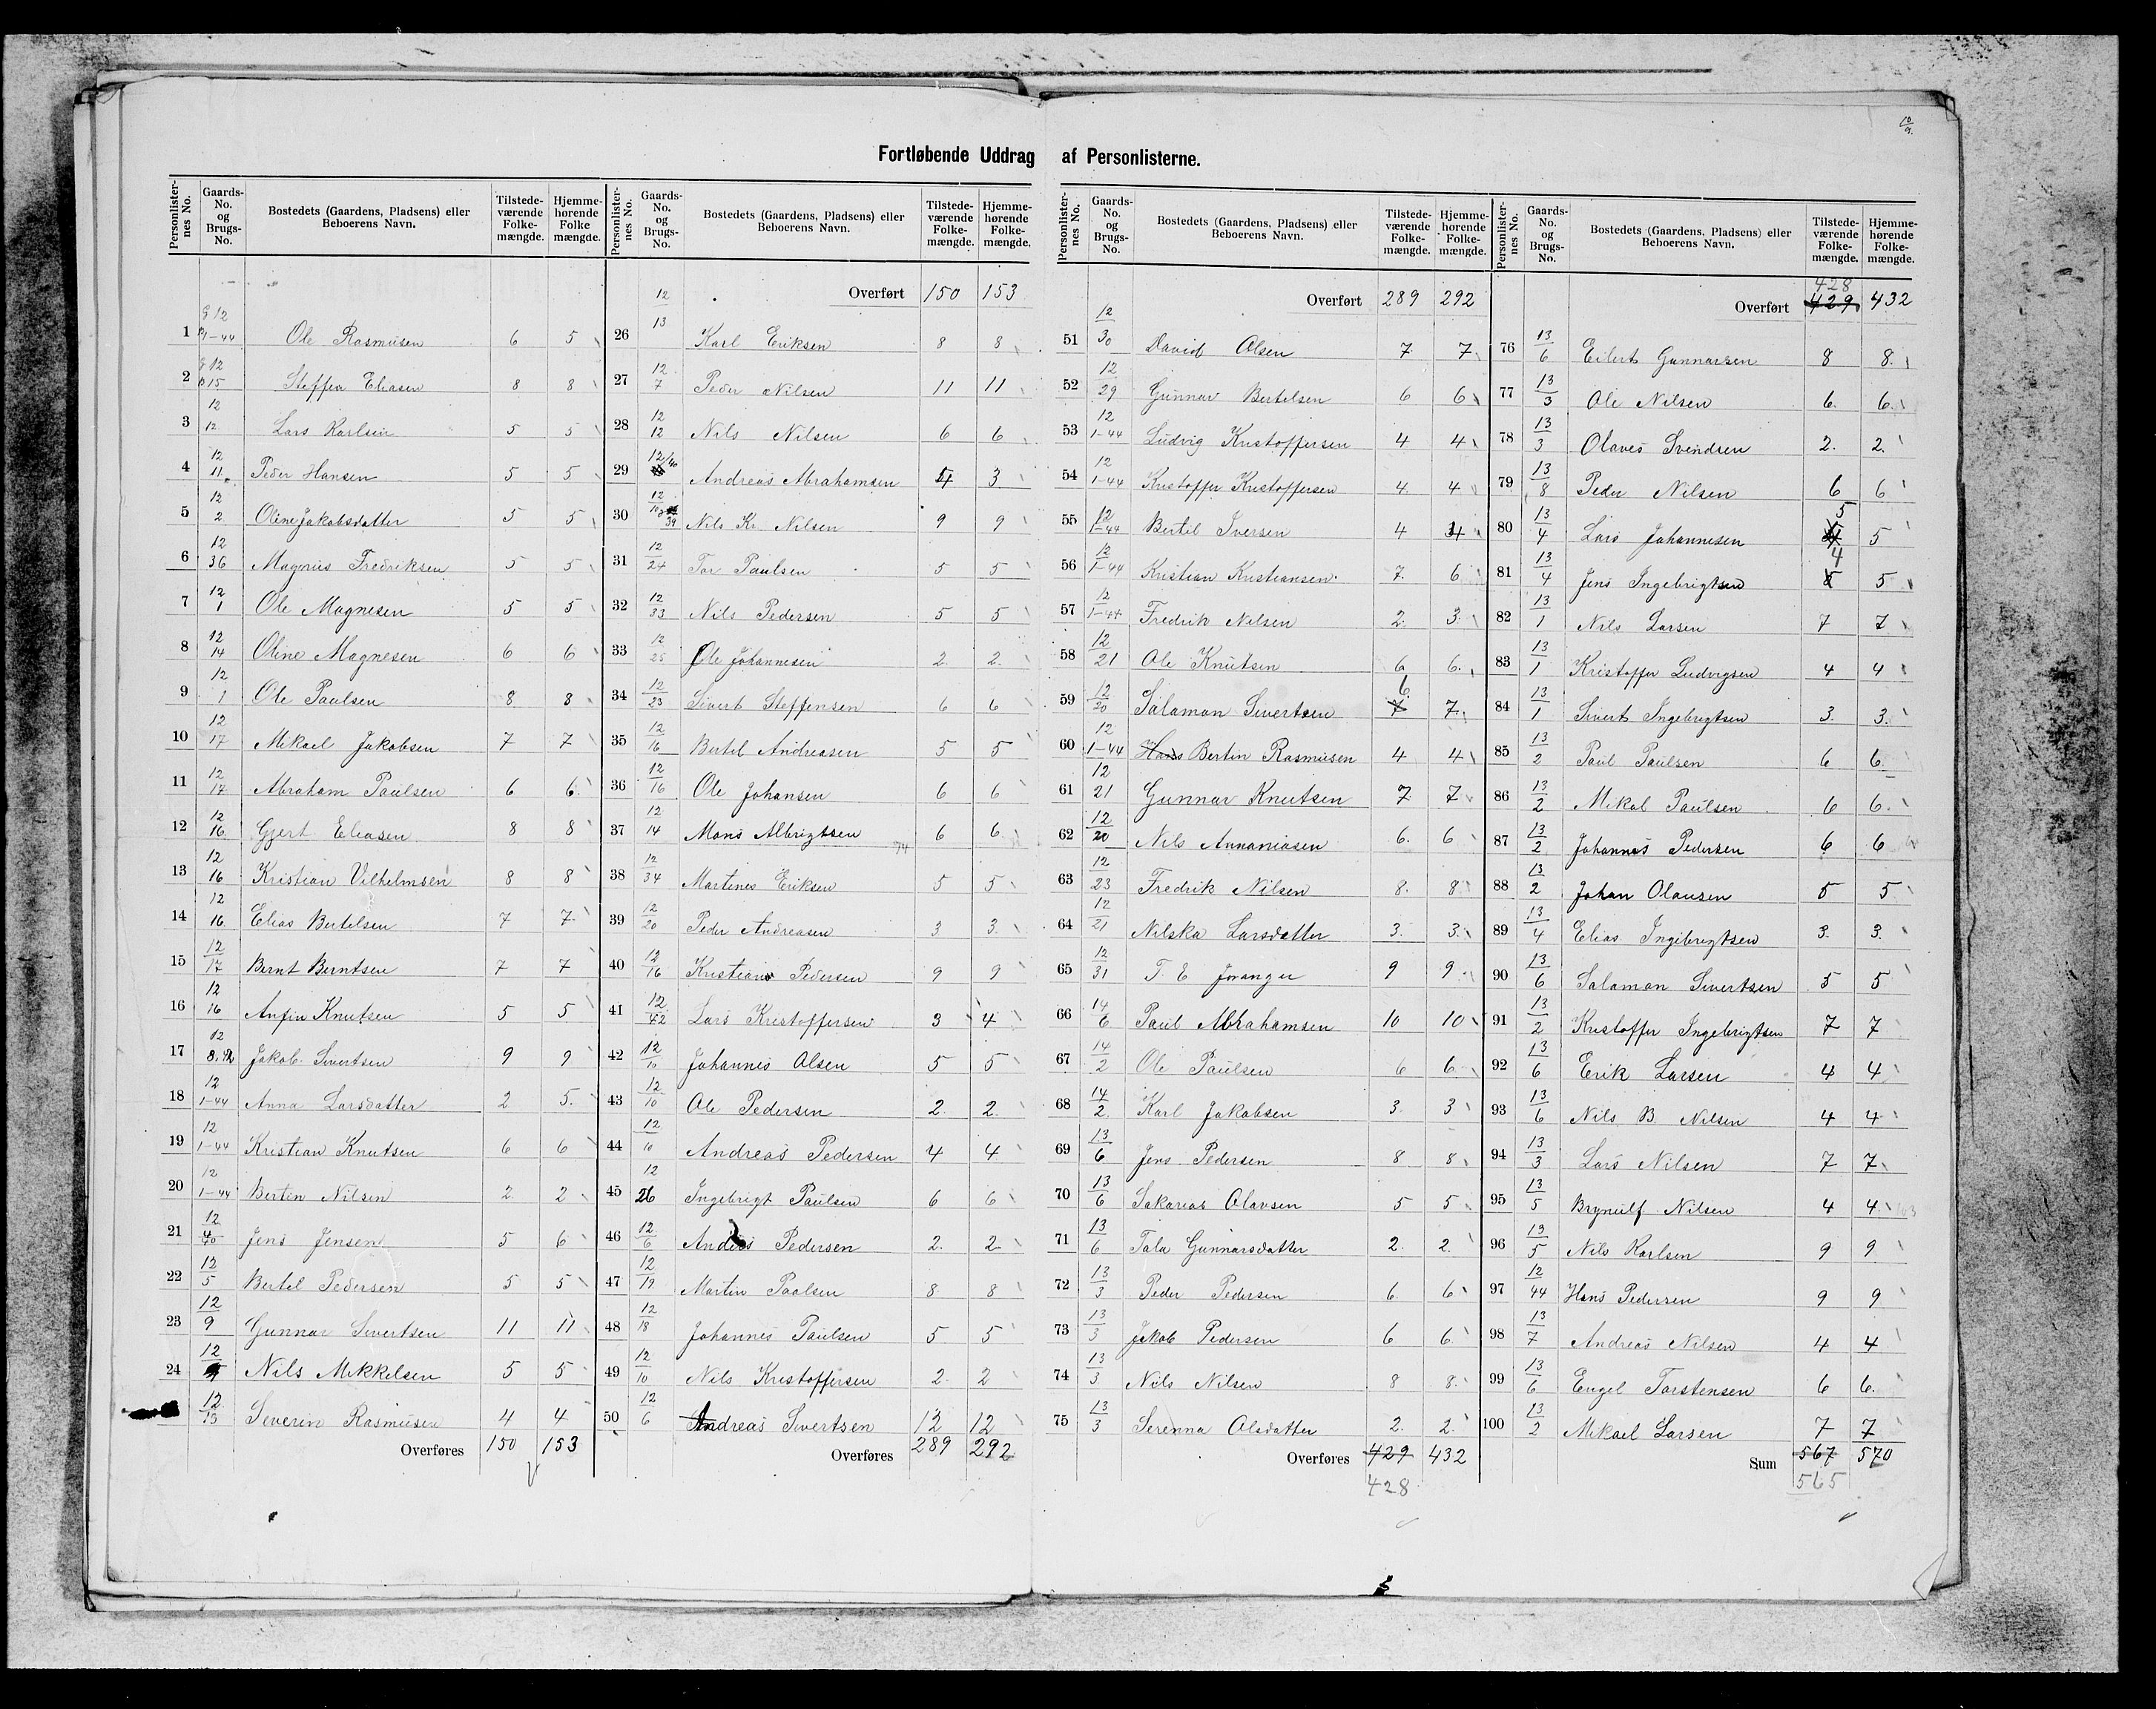 10/9.
Fortløbende Uddrag af Personlisterne.
Personlister-nes No. Gaards-No. og Brugs-No. Bostedets (Gaardens, Pladsens) eller Beboerens Navn. Tilstede-værende Folke-mængde. Hjemme-hørende Folke mængde.
1 G 12 B 1-44 Ole Rasmusen 6 5
2 G 12 B 15 Steffen Eliasen 8 8
3 12 12 Lars Karlsen 5 5
4 12 11 Peder Hansen 5 5
5 12 2 Oline Jakobsdatter 5 5
6 12 36 Magnus Fredriksen 5 5
7 12 1 Ole Magnesen 5 5
8 12 14 Oline Magnesen 6 6
9 12 1 Ole Paulsen 8 8
10 12 17 Mikael Jakobsen 7 7
11 12 17 Abraham Paulsen 6 6
12 12 16 Gjert Eliasen 8 8
13 12 16 Kristian Vilhelmsen 8 8
14 12 16 Elias Bertelsen 7 7
15 12 17 Bernt Berntsen 7 7
16 12 16 Anfin Knutsen 5 5
17 12 8,42 Jakob Sivertsen 9 9
18 12 1-44 Anna Larsdatter 2 5
19 12 1-44 Kristian Knutsen 6 6
20 12 1-44 Bertin Nilsen 2 2
21 12 40 Jens Jensen 5 6
22 12 5 Bertel Pedersen 5 5
23 12 9 Gunnar Sivertsen 11 11
24 12 Nils Mikkelsen 5 5
12 13 Severin Rasmusen 4 4
Overføres 150 153
Personlister-nes No. Gaards-No. og Brugs-No. Bostedets (Gaardens, Pladsens) eller Beboerens Navn. Tilstede-værende Folke-mængde. Hjemme-hørende Folke-mængde.
Overført 150 153
26 12 13 Karl Eriksen 8 8
27 12 7 Peder Nilsen 11 11
28 12 12 Nils Nilsen 6 6
29 12/40 Andreas Abrahamsen 4 3
30 12 39 Nils Kr. Nilsen 9 9
31 12 24 Tor Paulsen 5 5
32 12 33 Nils Pedersen 5 5
33 12 25 Ole Johannesen 2 2
34 12 23 Sivert Steffensen 6 6
35 12 16 Bertel Andreasen 5 5
36 12 16 Ole Johansen 6 6
37 12 14 Mons Albrigtsen 6 6
74
38 12 34 Martines Eriksen 5 5
39 12 20 Peder Andreasen 3 3
40 12 16 Kristian Pedersen 9 9
41 12 42 Lars Kristoffersen 3 4
42 12 10 Johannes Olsen 5 5
43 12 10 Ole Pedersen 2 2
44 12 10 Andreas Pedersen 4 4
45 12 26 Ingebrigt Paulsen 6 6
46 12 6 Andreas Pedersen 2 2
47 12 19 Martin Paulsen 8 8
48 12 18 Johannes Paulsen 5 5
49 12 10 Nils Kristoffersen 2 2
50 12 6 Andreas Sivertsen 12 12
Overføres 289 292
Personlister-nes No. Gaards-No. og Brugs-No. Bostedets (Gaardens, Pladsens) eller Beboerens Navn. Tilstede-værende Folke-mængde. Hjemme-hørende Folke-mængde.
Overført 289 292
51 12 30 David Olsen 7 7
52 12 29 Gunnar Bertelsen 6 6
53 12 1-44 Ludvig Kristoffersen 4 4
54 12 1-44 Kristoffer Kristoffersen 4 4
55 12 1-44 Bertil Iversen 4 4
56 12 1-44 Kristian Kristiansen 7 6
57 12 1-44 Fredrik Nilsen 2 3
58 12 21 Ole Knutsen 6 6
59 12 20 Salamon Sivertsen 7 6 7
60 12 1-44 Hans Bertin Rasmusen 4 4
61 12 21 Gunnar Knutsen 7 7
62 12 20 Nils Annaniasen 6 6
63 12 23 Fredrik Nilsen 8 8
64 12 21 Nilska Larsdatter 3 3
65 12 31 T. E Joranger 9 9
66 14 6 Paul Abrahamsen 10 10
67 14 2 Ole Paulsen 6 6
68 14 2 Karl Jakobsen 3 3
69 13 6 Jens Pedersen 8 8
70 13 6 Sakarias Olavsen 5 5
71 13 6 Tala Gunnarsdatter 2 2
72 13 3 Peder Pedersen 6 6
73 13 3 Jakob Pedersen 6 6
74 13 3 Nils Nilsen 8 8
75 13 3 Serenna Olsdatter 2 2
Overføres 429 432
428
Personlister-nes No. Gaards-No. og Brugs-No. Bostedets (Gaardens, Pladsens) eller Beboerens Navn. Tilstede-værende Folke-mængde. Hjemme-hørende Folke-mængde.
428
Overført 429 432
76 13 6 Eilert Gunnarsen 8 8
77 13 3 Ole Nilsen 6 6
78 13 3 Olaves Svendsen 2 2
79 13 8 Peder Nilsen 6 6
80 13 4 Lars Johannesen 5 5
81 13 4 Jens Ingebrigtsen 5 4 5
82 13 1 Nils Larsen 7 7
83 13 1 Kristoffer Ludvigsen 4 4
84 13 1 Sivert Ingebrigtsen 3 3
85 13 2 Paul Paulsen 6 6
86 13 2 Mikal Paulsen 6 6
87 13 2 Johannes Pedersen 6 6
88 13 2 Johan Olausen 5 5
89 13 4 Elias Ingebrigtsen 3 3
90 13 6 Salamon Sivertsen 5 5
91 13 2 Kristoffer Ingebrigtsen 7 7
92 13 6 Erik Larsen 4 4
93 13 6 Nils B. Nilsen 4 4
94 13 3 Lars Nilsen 7 7
95 13 5 Brynulf Nilsen 4 4
96 13 5 Nils Karlsen 9 9
97 12 44 Hans Pedersen 9 9
98 13 7 Andreas Nilsen 4 4
99 13 6 Engel Torstensen 6 6
100 13 2 Mikael Larsen 7 7
Sum 567 570
565